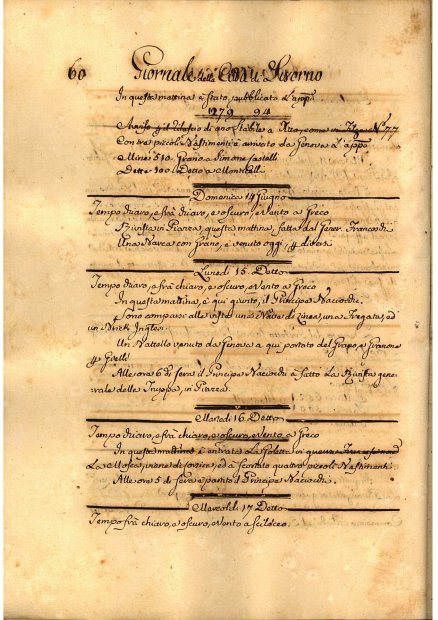 60 Giornale della Città di Livorno
In questa mattina è stato pubblicato l'app.
1279 94
di 400 stabile a come in N. 77
Con tre piccoli Bastimenti è arrivato da Genova l'app.
Mine 510 Grano a Simone Castelli
Dette 100 Detto a Monticelli
Domenica 14 Giugno
Tempo chiaro, e frà chiaro, e oscuro, e Vento a Greco
Rivista in Piazza, questa mattina, fatta dal Gener. Franceschi
Una Barca con Grano, è venuto oggi, p. diversi
Lunedi 15 Detto
Tempo chiaro, e frà chiaro, e oscuro, e Vento a Greco
In questa mattina, è qui giunto, il Principe Baciocchi
Sono comparsi alle viste una Nave di Linea, una Fregata, ed
un Brick Inglesi
Un Battello venuto da Genova a qui portato del Grano, e
p. Girelli
Alle ore 6 di sera il Principe Baciocchi à fatto la Rivista gene-
rale delle Truppe, in Piazza.
Martedi 16 Detto
Tempo chiaro, e frà chiaro, e oscuro, e Vento a Greco
In questa mattina è entrata la Goletta
La Mosca, viene da Corsica, ed à scortato quattro piccoli Bastimenti
Alle ore 5 di sera è partito il Principe Baciocchi
Mercoldi 17 Detto
Tempo frà chiaro, e oscuro, e Vento a Scilocco.